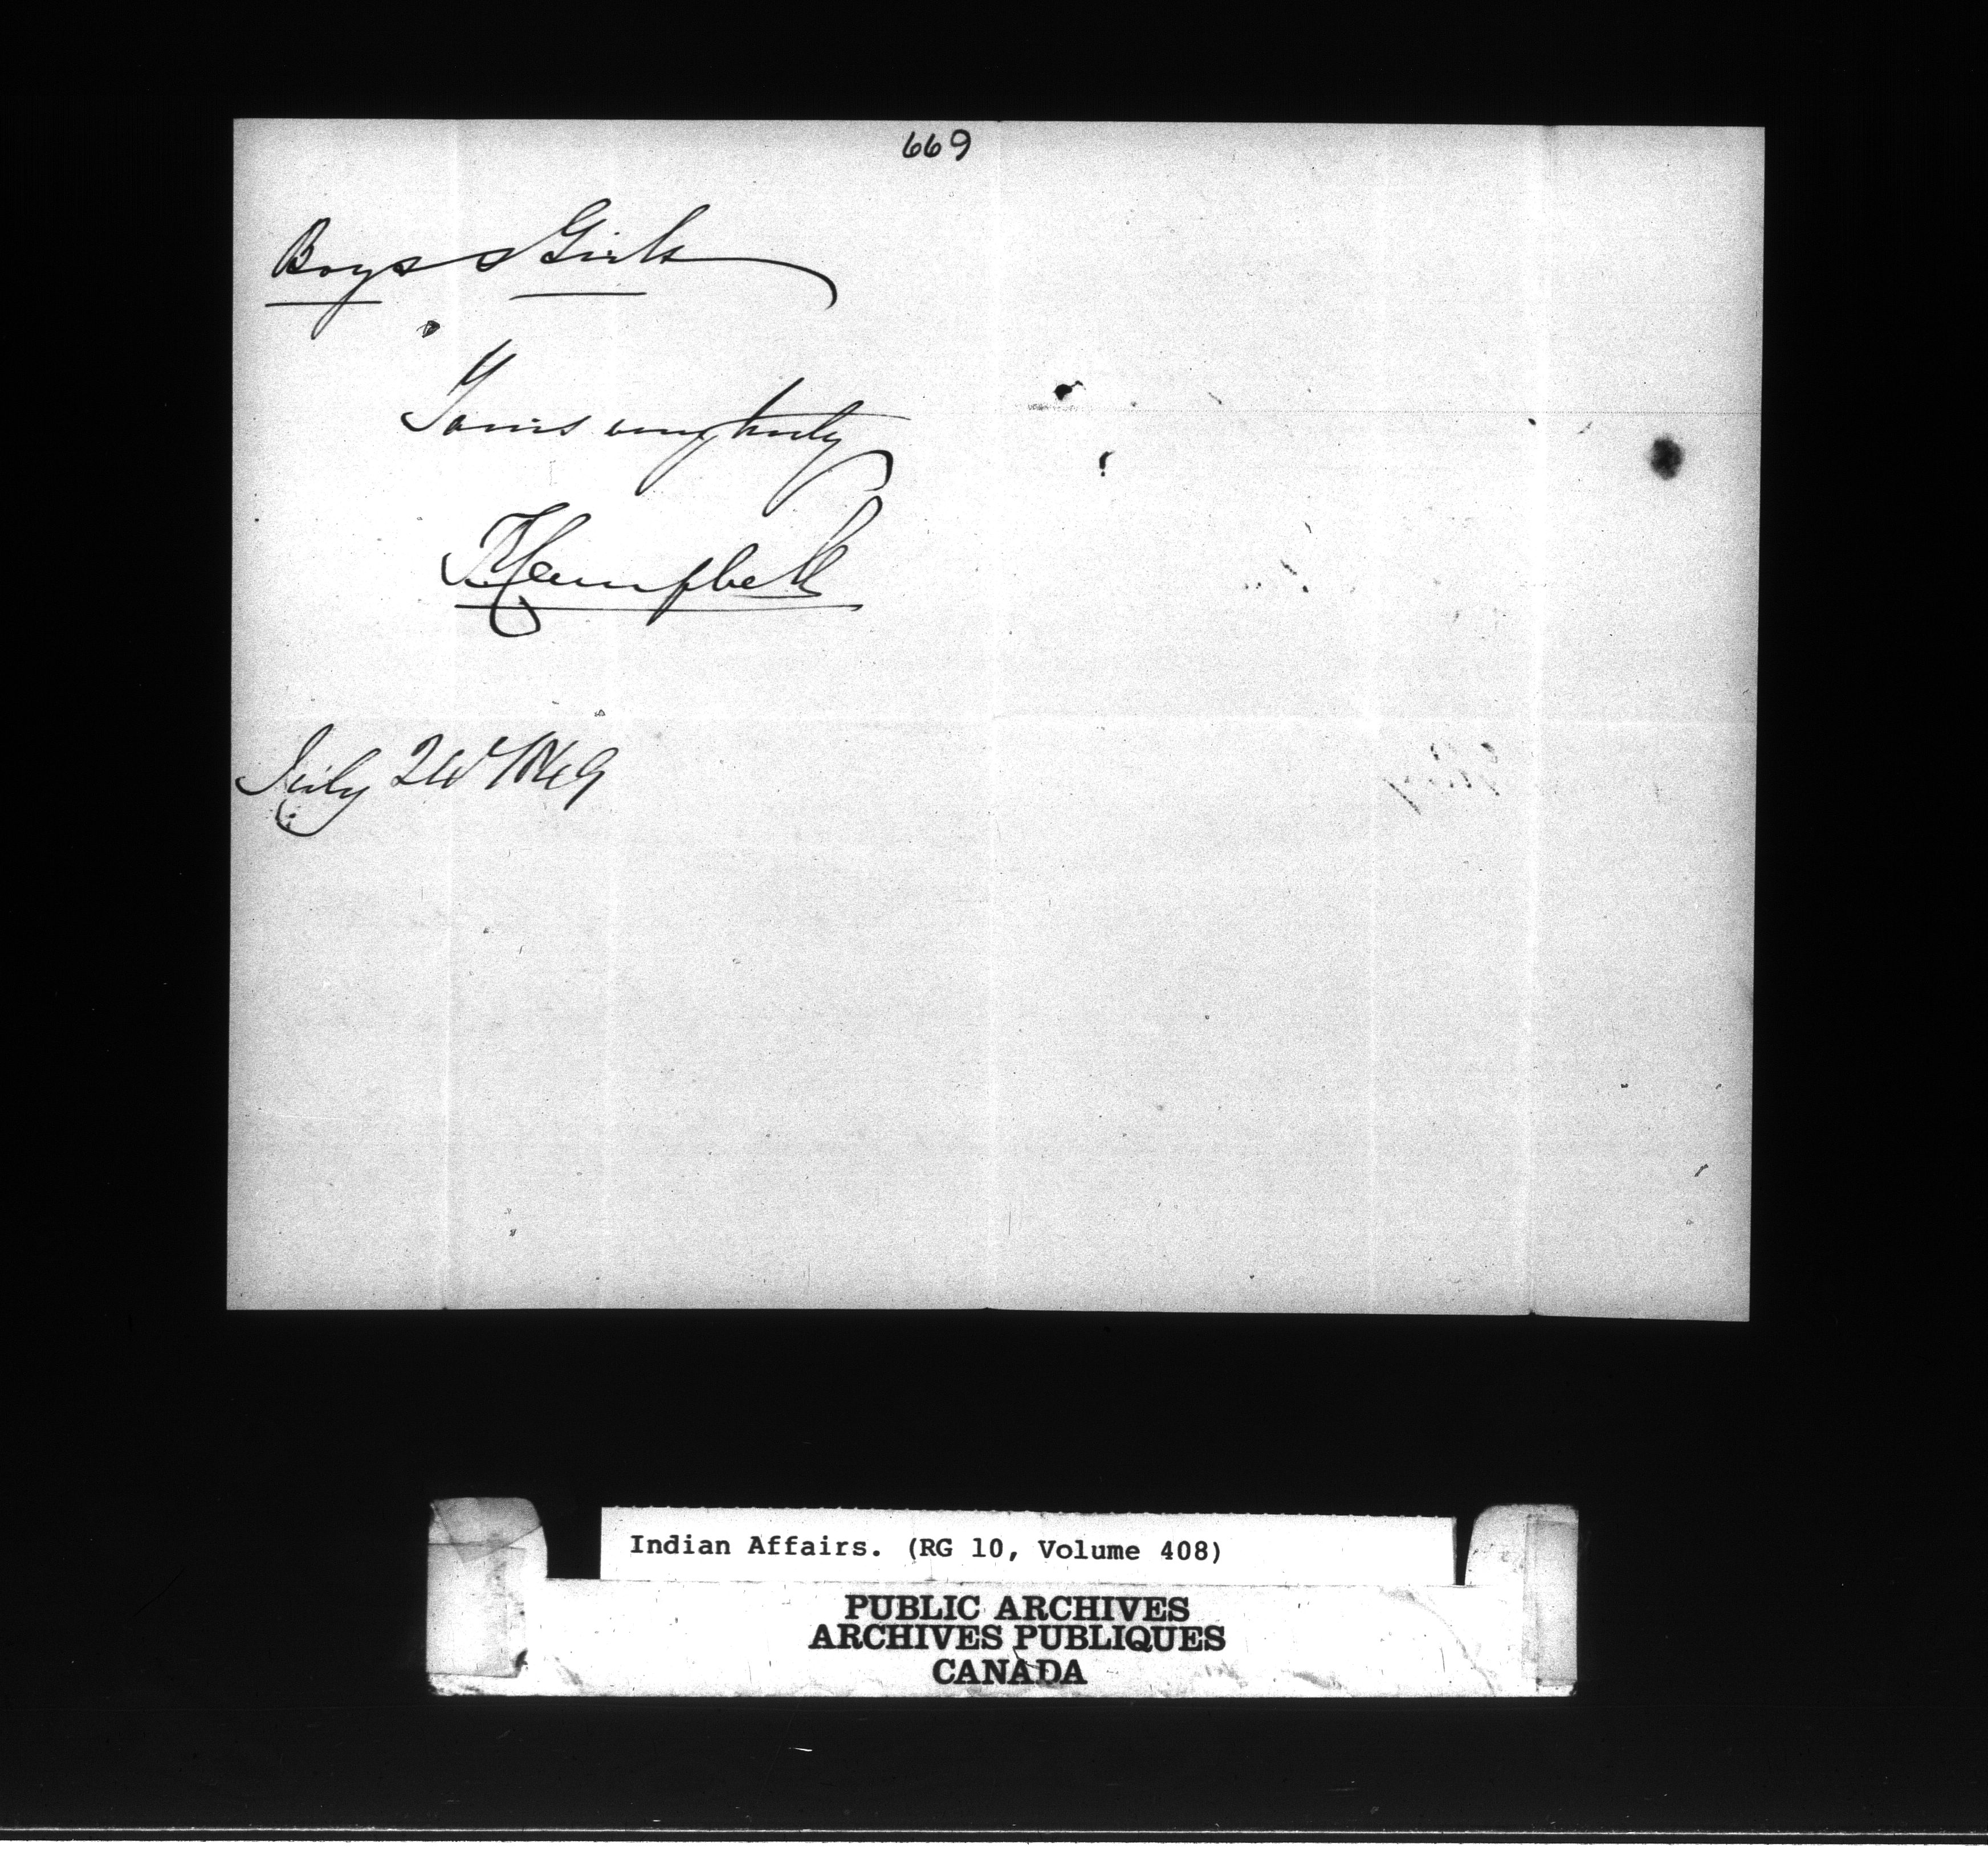 669
Boys & Girls
Yours very truly
T. Campbell
July 1849
Indian Affairs. (RG 10, Volume 408)
PUBLIC ARCHIVES
ARCHIVES PUBLIQUES
CANADA